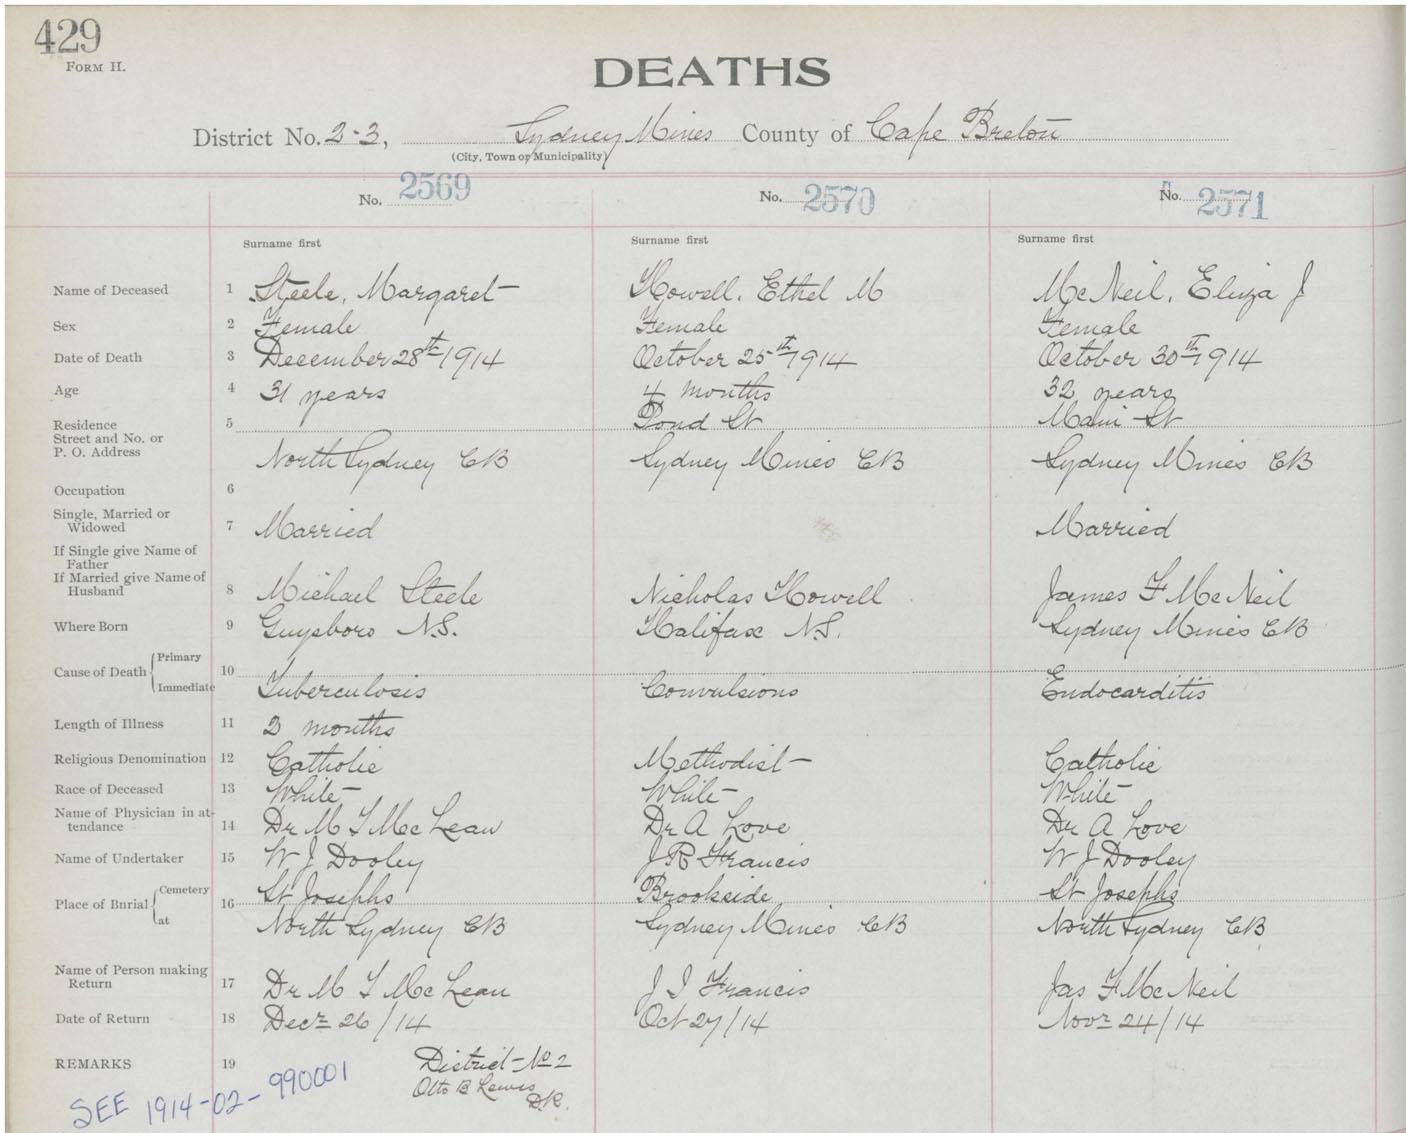 429
FORM H.
DEATHS
District No. 2-3, Sydney Mines County of Cape Breton
(City, Town or Municipality)
No. 2569 No. 2570 No. 2571
Surname first Surname first Surname first
Name of Deceased 1 Steele, Margaret Howell, Ethel M McNeil, Eliza J
Sex 2 Female Female Female
Date of Death 3 December 28th 1914 October 25th 1914 October 30th 1914
Age 4 31 years 4 months 32 years
Residence 5 Pond St Main St
Street and No. or
P. O. Address North Sydney CB Sydney Mines CB Sydney Mines CB
Occupation 6
Single, Married or
Widowed 7 Married Married
If Single give Name of
Father
If Married give Name of
Husband 8 Michael Steele Nicholas Howell James F McNeil
Where Born 9 Guysboro N.S. Halifax N.S. Sydney Mines CB
Primary
Cause of Death 10
Immediate Tuberculosis Convulsions Endocarditis
Length of Illness 11 2 months
Religious Denomination 12 Catholic Methodist Catholic
Race of Deceased 13 White White White
Name of Physician in at-
tendance 14 Dr M T McLean Dr A Love Dr A Love
Name of Undertaker 15 W J Dooley J R Francis W J Dooley
Cemetery St Josephs Brookside St Josephs
Place of Bnrial 16
at North Sydney CB Sydney Mines CB North Sydney CB
Name of Person making
Return 17 Dr M T McLean J I Francis Jas F McNeil
Date of Return 18 Decr 26/14 Oct 27/14 Novr 24/14
REMARKS 19 District No 2
Otto B Lewis
D.R.
SEE 1914-02-990001